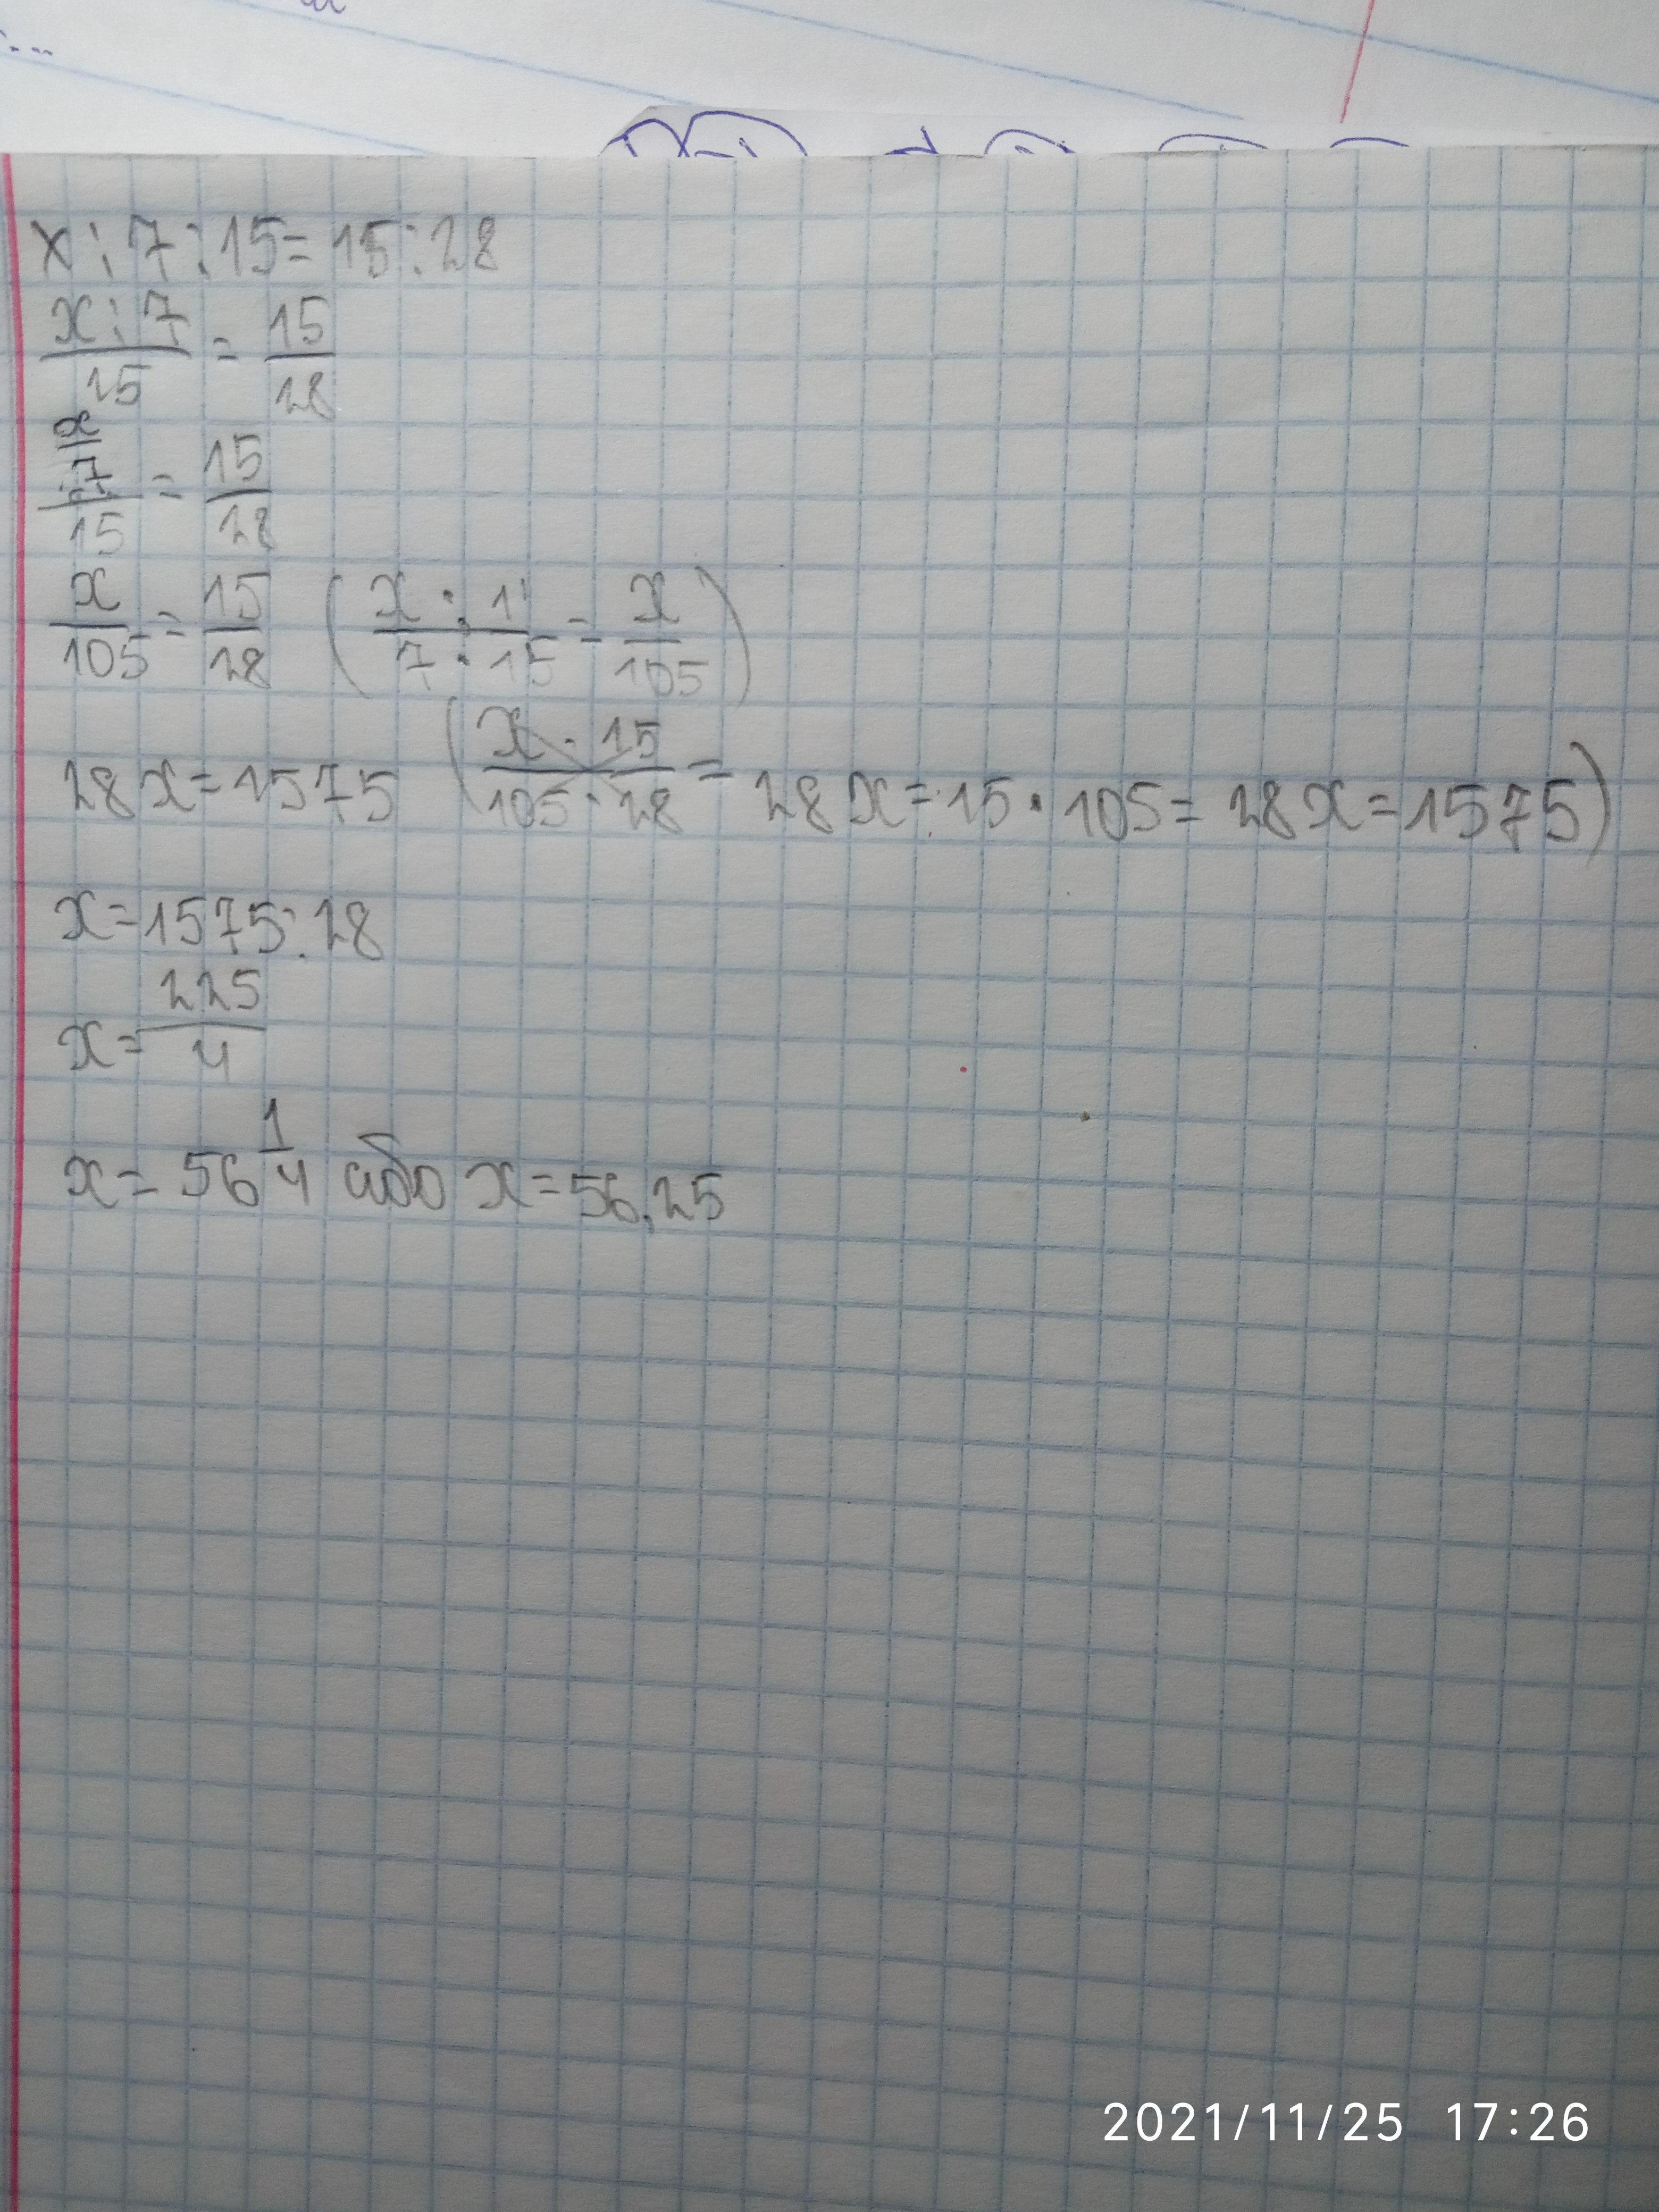 x : 7 : 15 = 15 : 28
x : 7 / 15 = 15 / 28
x / 7 / 15 = 15 / 28
x / 105 = 15 / 28 ( x · 1 / 7 · 15 = x / 105 )
28x = 1575 ( x · 15 / 105 · 28 = 28x = 15 · 105 = 28x = 1575 )
x = 1575 : 28
x = 225 / 4
x = 56 1/4 або x = 56,25
2021/11/25 17:26